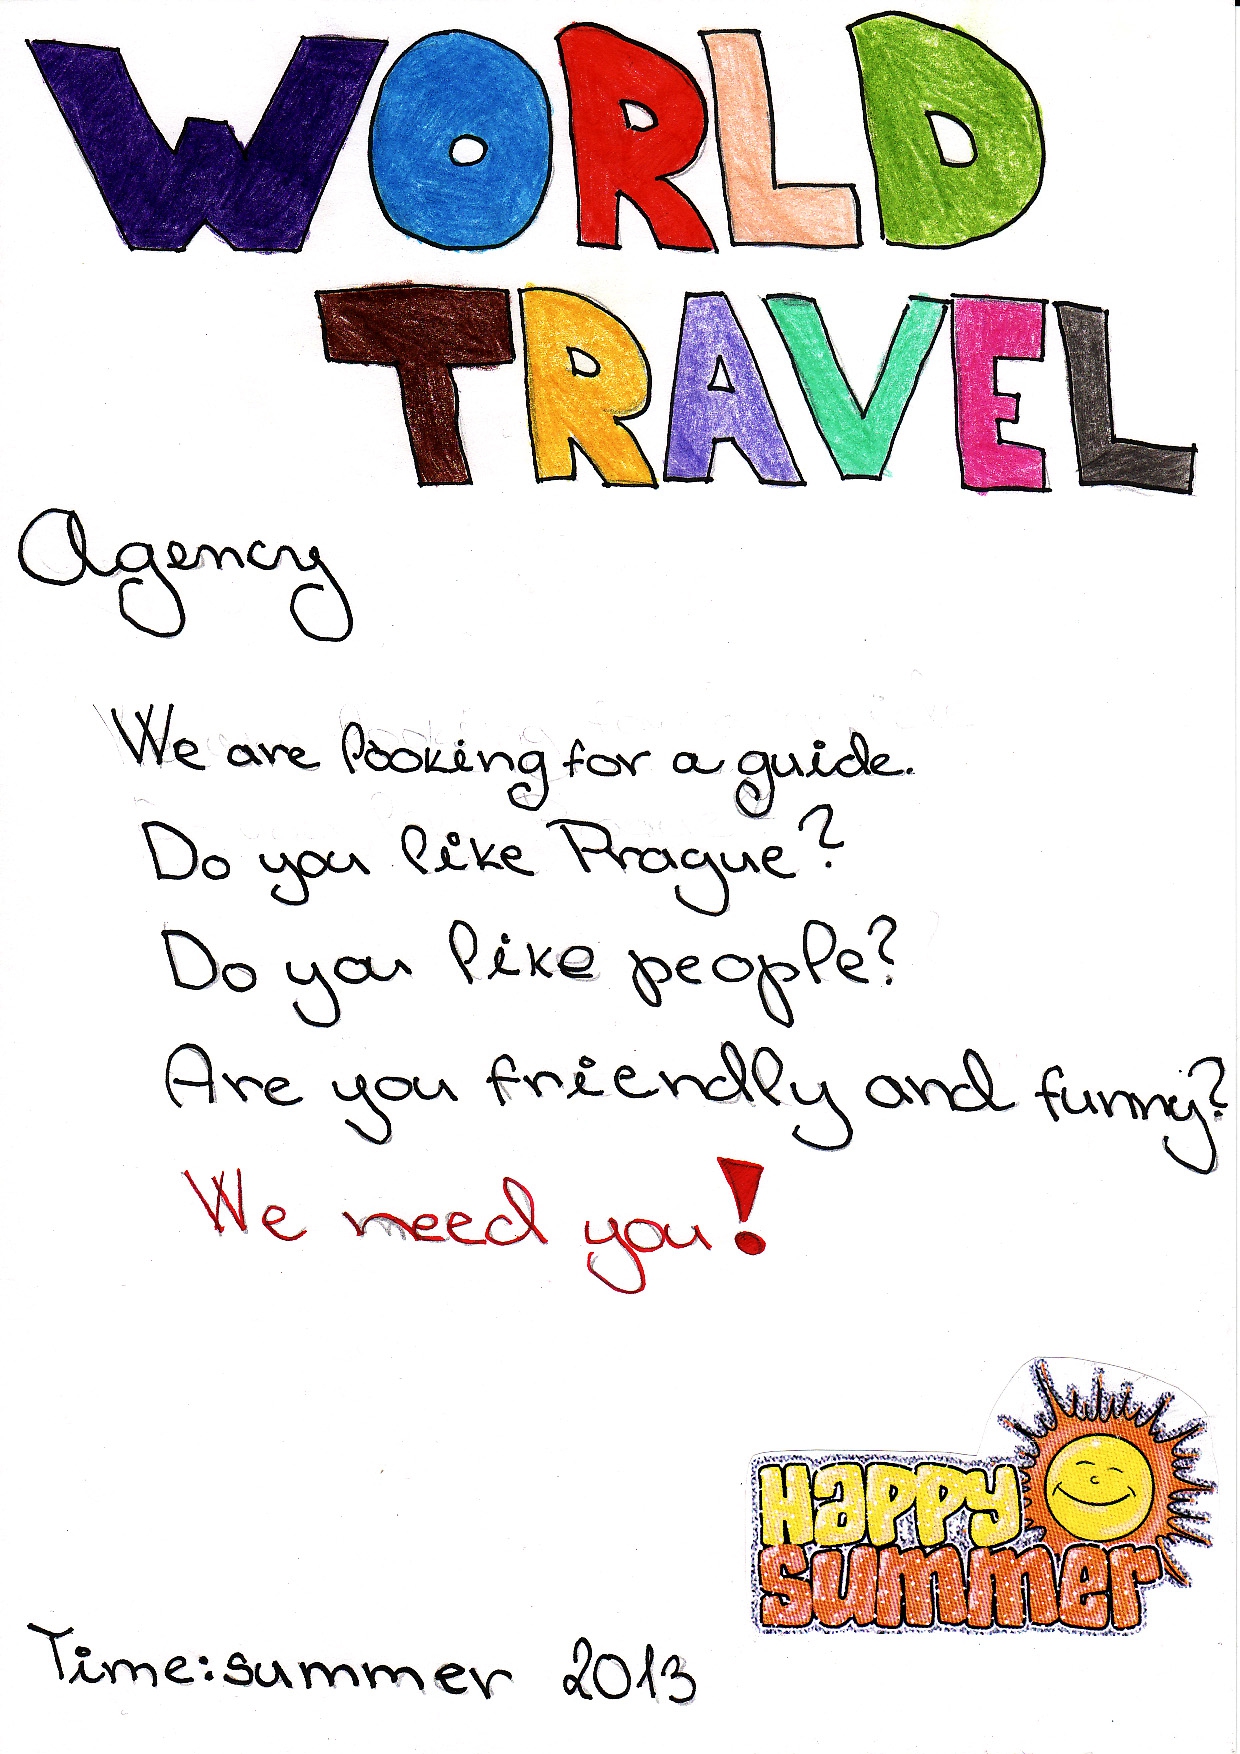 WORLD
TRAVEL
Agency
We are looking for a guide.
Do you like Prague?
Do you like people?
Are you friendly and funny?
We need you!
Happy
Summer
Time:summer 2013